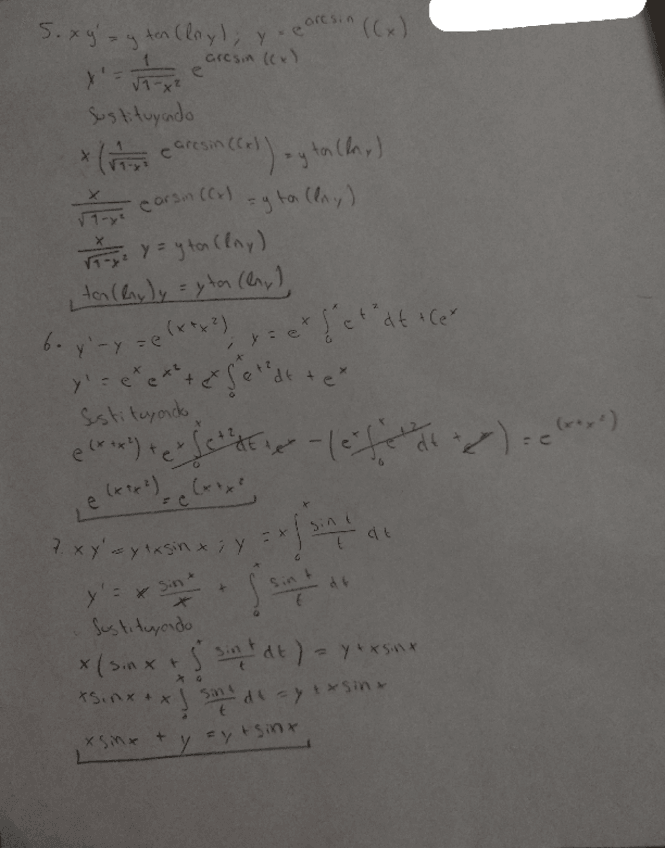 5. xy' = y tan (ln y); y = e^arcsin (Cx)
y' = 1/√1-x² e^arcsin (Cx)
Sustituyendo
x (1/√1-x² e^arcsin (Cx)) = y tan (ln y)
x/√1-x² e^arsin (Cx) = y tan (ln y)
x/√1-x² y = y tan (ln y)
tan (ln y) y = y tan (ln y)
6. y' - y = e^(x+x²), y = e^x ∫₀^x e^t² dt + Ce^x
y' = e^x e^x² + e^x ∫₀^x e^t² dt + e^x
Sustituyendo
e^(x+x²) + e^x ∫₀^x e^t² dt + e^x - (e^x ∫₀^x e^t² dt + e^x) = e^(x+x²)
e^(x+x²) = e^(x+x²
7. xy' = y + x sin x; y = x ∫₀^x sin t/t dt
y' = x sin x/x + ∫₀^x sin t/t dt
Sustituyendo
x (sin x + ∫₀^x sin t/t dt) = y + x sin x
x sin x + x ∫₀^x sin t/t dt = y + x sin x
x sin x + y = y + sin x